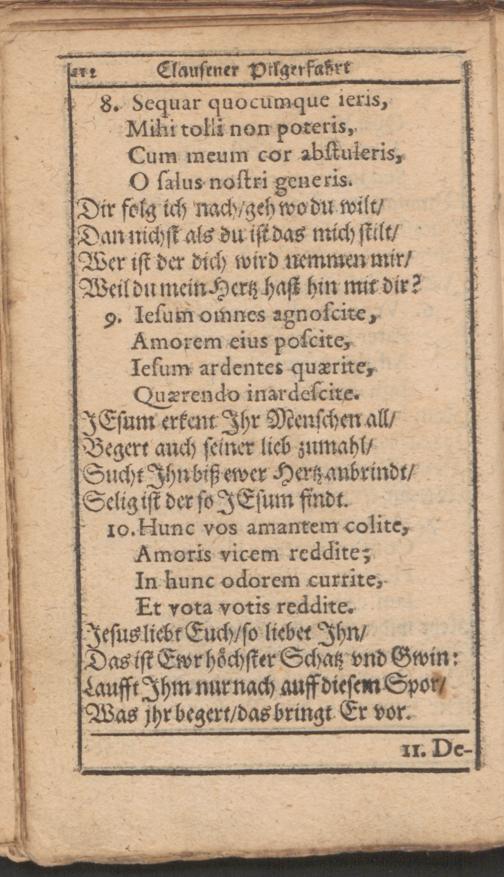 212 Clausener Pilgerfahrt
8. Sequar quocumque ieris,
Mihi tolli non poteris,
Cum meum cor abſtuleris,
O ſalus noſtri generis.
Dir folg ich nach/geh wo du wilt/
Dan nichſt als du iſt das mich ſtilt/
Wer iſt der dich wird nemmen mir/
Weil du mein Hertz haſt hin mit dir?
9. Ieſum omnes agnoſcite,
Amorem eius poſcite,
Ieſum ardentes quærite,
Quærendo inardeſcite.
JEſum erkent Jhr Menſchen all/
Begert auch ſeiner lieb zumahl/
Sucht Jhn biß ewer Hertz anbrindt/
Selig iſt der ſo JEſum findt.
10. Hunc vos amantem colite,
Amoris vicem reddite;
In hunc odorem currite,
Et vota votis reddite.
Jeſus liebt Euch/ſo liebet Jhn/
Das iſt Ewr höchſter Schatz vnd Gwin:
Laufft Jhm nur nach auff dieſem Spor/
Was jhr begert/das bringt Er vor.
11. De-